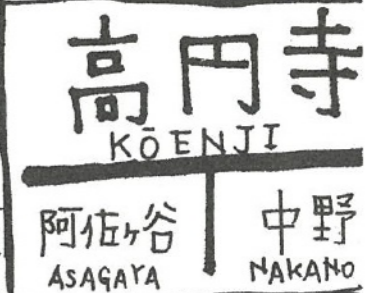 高円寺
KŌENJI
阿佐ヶ谷
ASAGAYA
中野
NAKANO